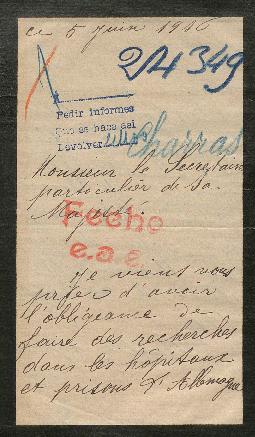 ce 5 Juin 1916
24349
Pedir informes
Que se haga así
Devolver
Charras
Monsieur le Secrétaire
particulier de Sa
Majesté.
Feche
e.a.e.
Je viens vous
prier d'avoir
l'obligeance de
faire des recherches
dans les hôpitaux
et prisons d'Allemagne